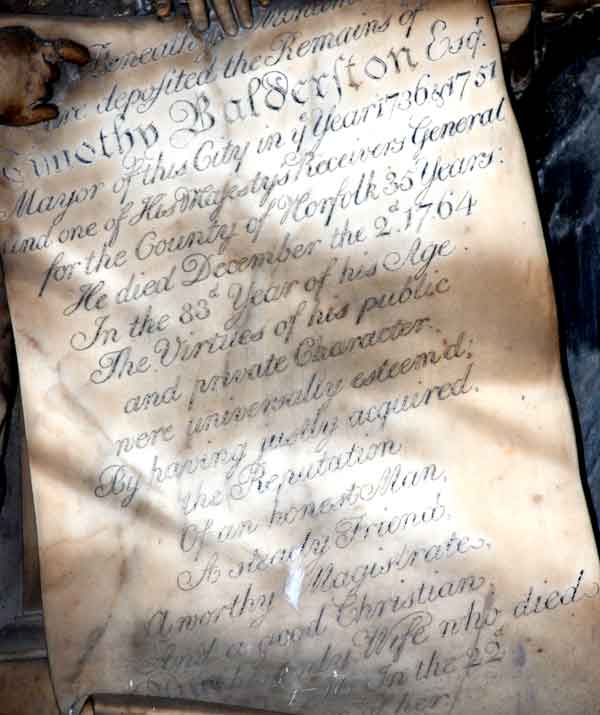 Beneath
are deposited the Remains of
Timothy Balderston Esqr.
Mayor of this City in ye Year 1736 & 1751
and one of His Majesty's Receivers General
for the County of Norfolk 35 Years:
He died December the 2d. 1764
In the 83d Year of his Age.
The Virtues of his public
and private Character
were universally esteem'd;
By having justly acquired
the Reputation
Of an honest Man,
A steady Friend,
A worthy Magistrate,
And a good Christian;
Wife who died
In the 22d
her